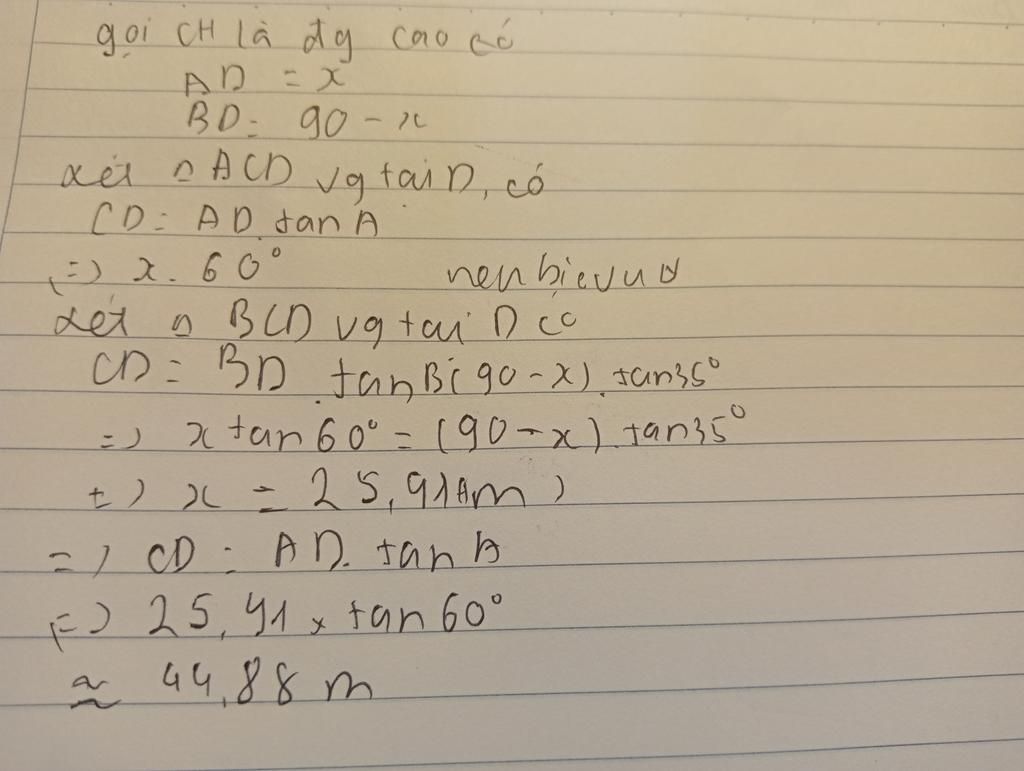 gọi CH là đg cao có
AD = x
BD = 90 - x
xét △ ACD vg tại D, có
CD = AD. tan A
(=) x. 60°
xét △ BCD vg tai D có
CD = BD . tanB (90 - x) . tan35°
=) x tan 60° = (90 - x). tan35°
x = 25,91 m)
=) CD = AD. tan A
(=) 25,91 x tan 60°
≈ 44,88 m